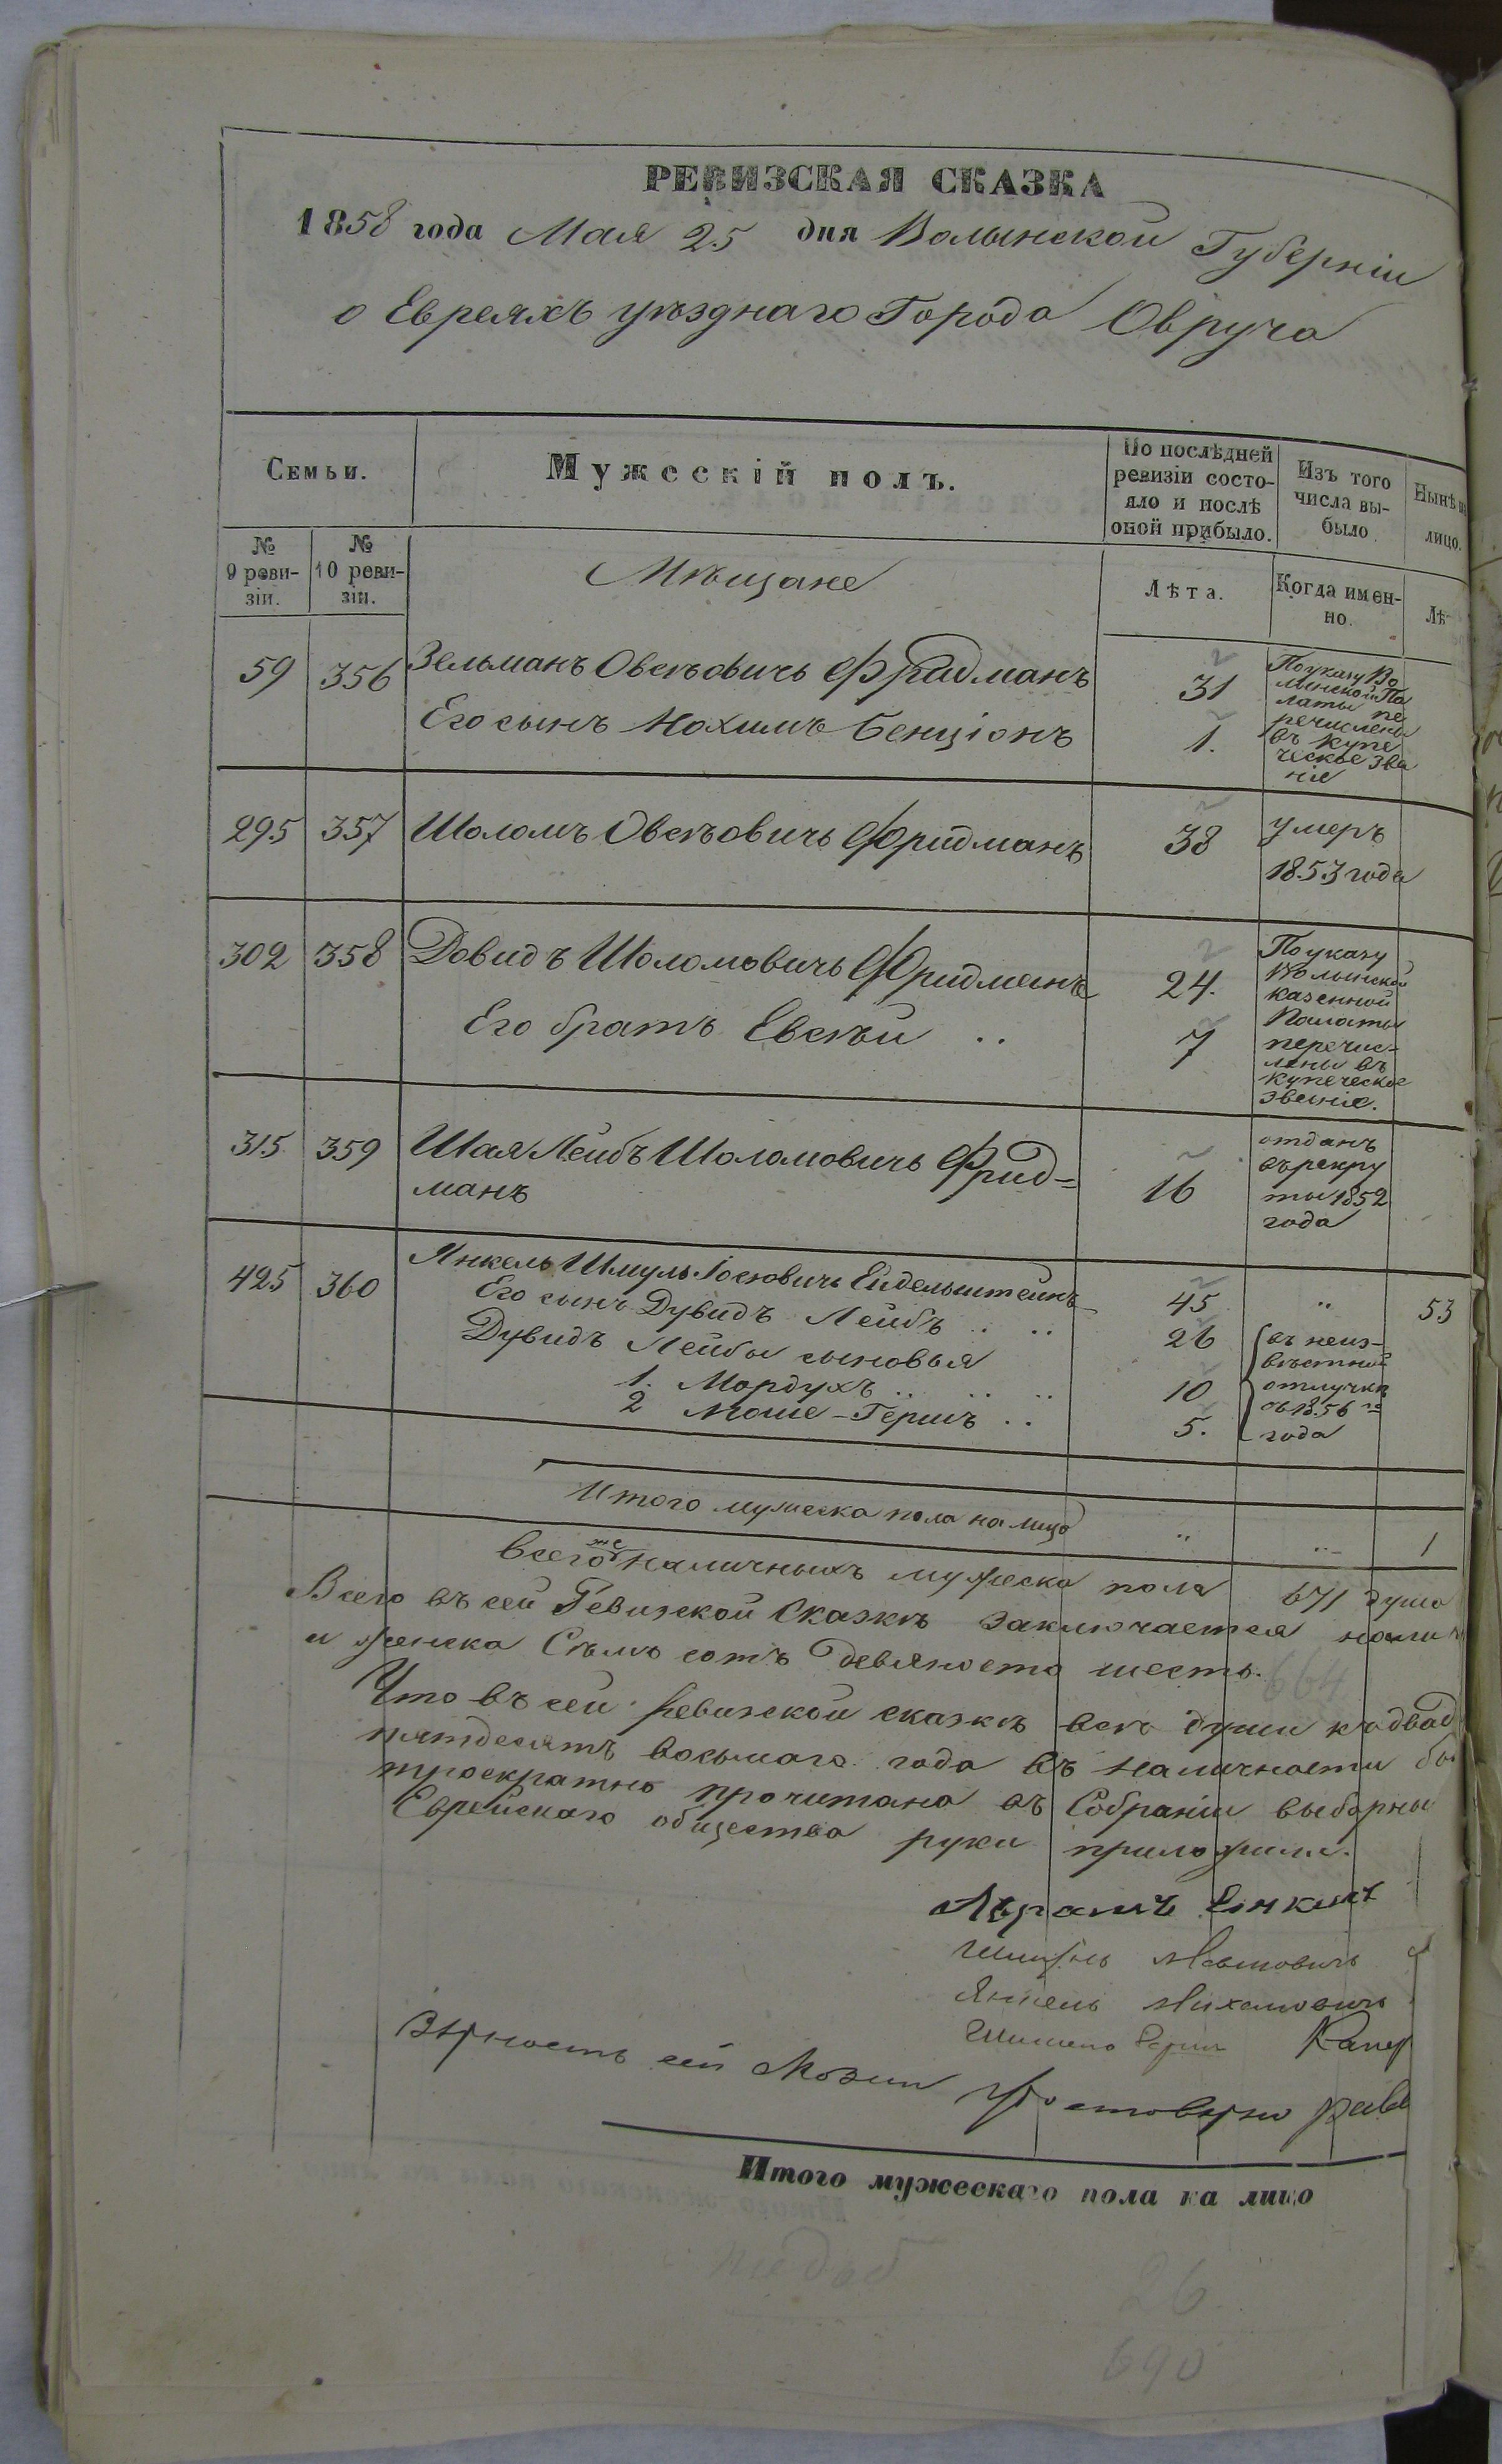 РЕВИЗСКАЯ СКАЗКА
1858 года Мая 25 дня Волынской Губерніи
о Евреяхъ уѣзднаго Города Овруча
Семьи.
Мужескій полъ.
По послѣдней
ревизіи состо-
яло и послѣ
оной прибыло.
Изъ того
числа вы-
было.
Нынѣ
лицо.
№
9 реви-
зіи.
№
10 реви-
зіи.
Мѣщане
Лѣта.
Когда имен-
но.
Лѣ
59 356 Зельманъ Овсѣовичь Фридманъ 31
Его сынъ Нохимъ Бенціонъ 1.
По указу Во
лынской Па
латы пе
речислены
въ купе
ческое зва
ніе
295 357 Шоломъ Овсѣовичь Фридманъ 38
умеръ
1853 года
302 358 Довидъ Шоломовичь Фридманъ 24.
Его брат Евсѣй .. 7
По указу
Волынской
казенной
Палаты
перечис-
лены въ
купеческое
званіе.
315 359 Шая Лейбъ Шоломовичь Фрид=
манъ 16
отданъ
въ рекру
ты 1852
года
425 360 Янкель Шмуль Іосіовичь Ейдельштейнъ 45 " 53
Его сынъ Дувидъ Лейбъ . .. 26
Дувидъ Лейбы сыновья
1. Мордухъ .. .. .. 10
2 Моше-Гершъ .. 5.
въ неиз-
вѣстной
отлучкѣ
съ 1856 го
года
Итого мужеска пола на лицо " " 1
Всего же наличныхъ мужеска пола 671 душа
Всего въ сей Ревизской Сказкѣ заключается
и женска Сѣмъ сотъ девяносто шесть. 664
Что въ сей ревизской сказкѣ всѣ души къ двад
пятдесятъ восьмаго года въ наличности
троекратно прочитана въ Собраніи выборны
Еврейскаго общества руки приложили.
Абрамъ
Янкель Михелиовичь
Вѣрность сей
Итого мужескаго пола на лицо
26
690